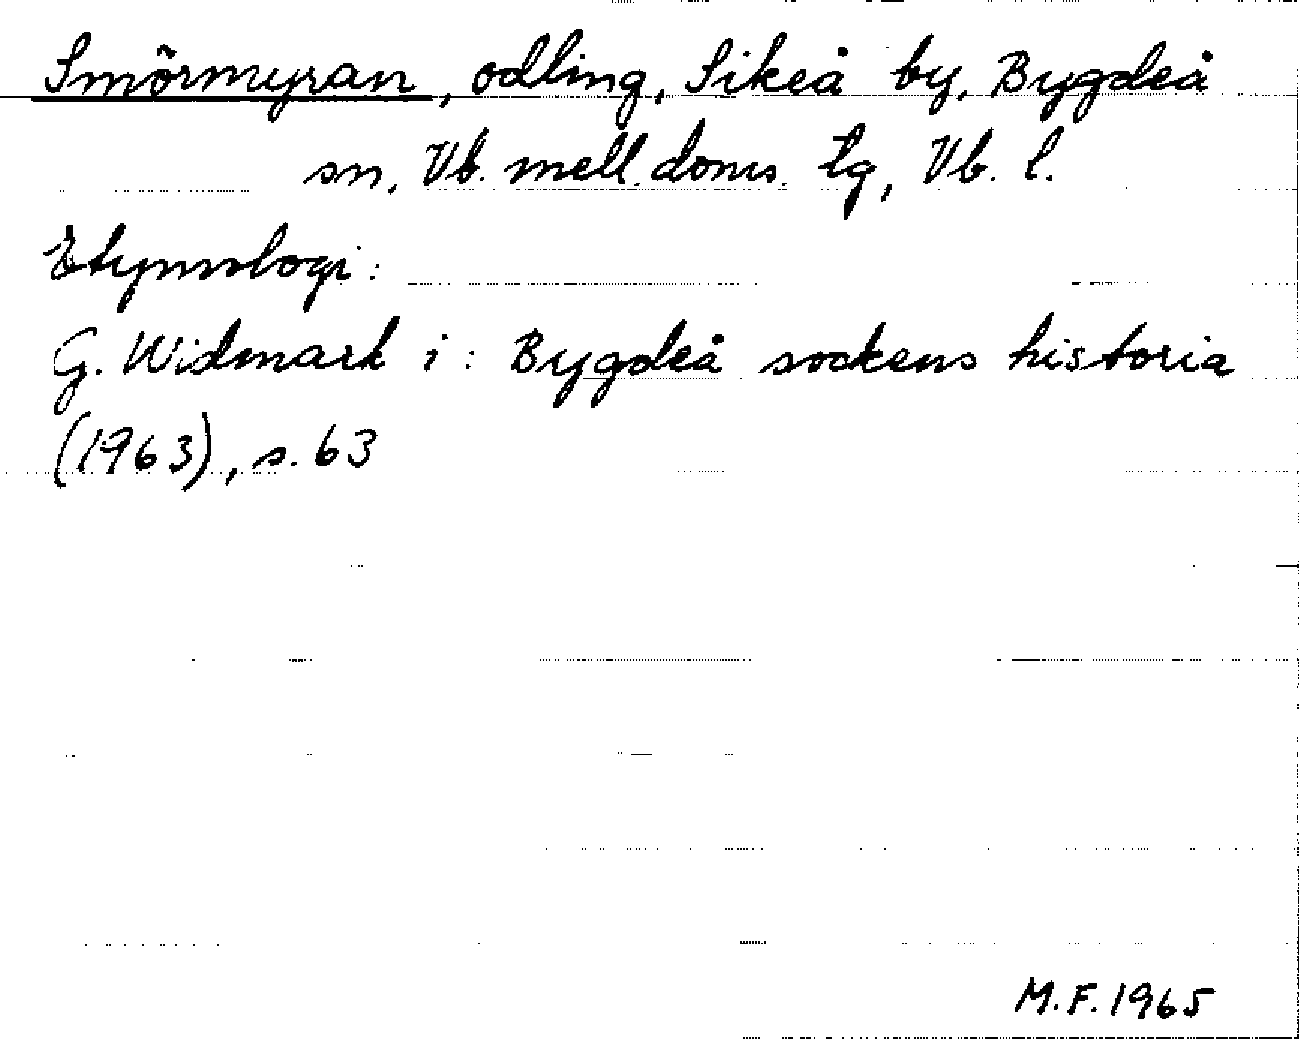 Smörmyran, odling, Sikeå by, Bygdeå
sn, Vb. mell. doms. tg, Vb. l.
Etymologi:
G. Widmark i: Bygdeå sockens historia
(1963), s. 63
M.F. 1965